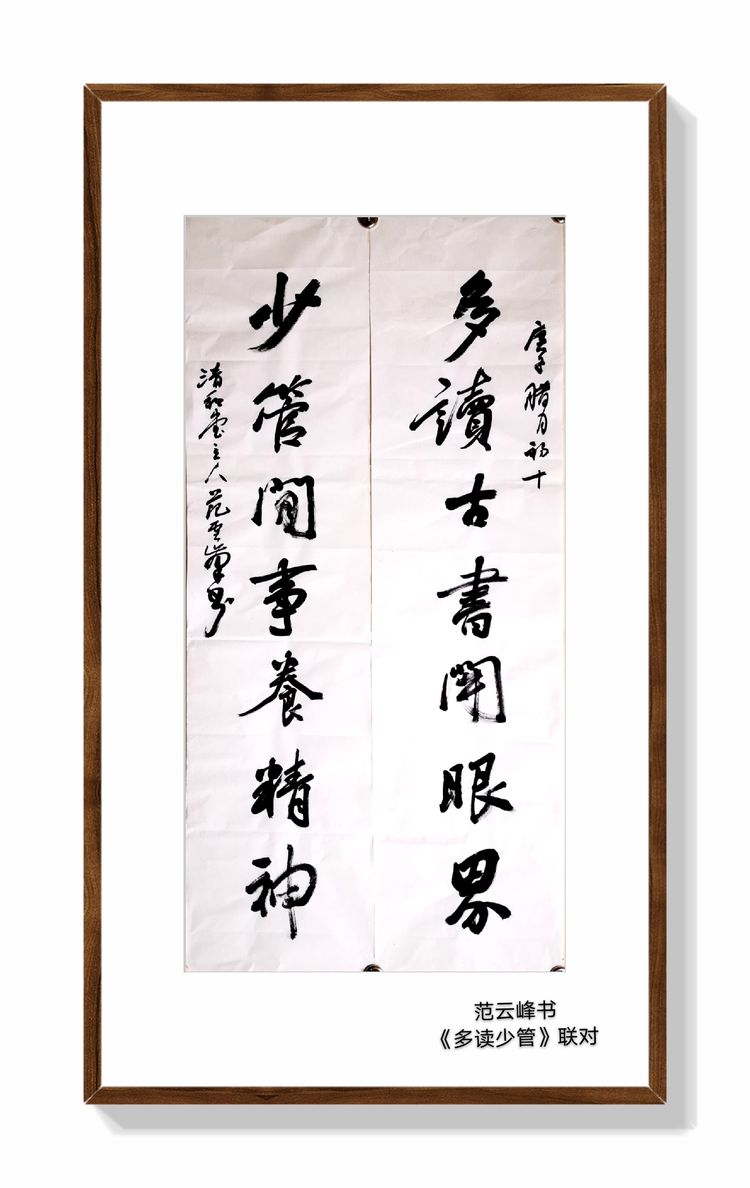 庚子腊月初十
多讀古書開眼界
少管閒事養精神
清和堂主人范雲峰书
范云峰书
《多读少管》联对